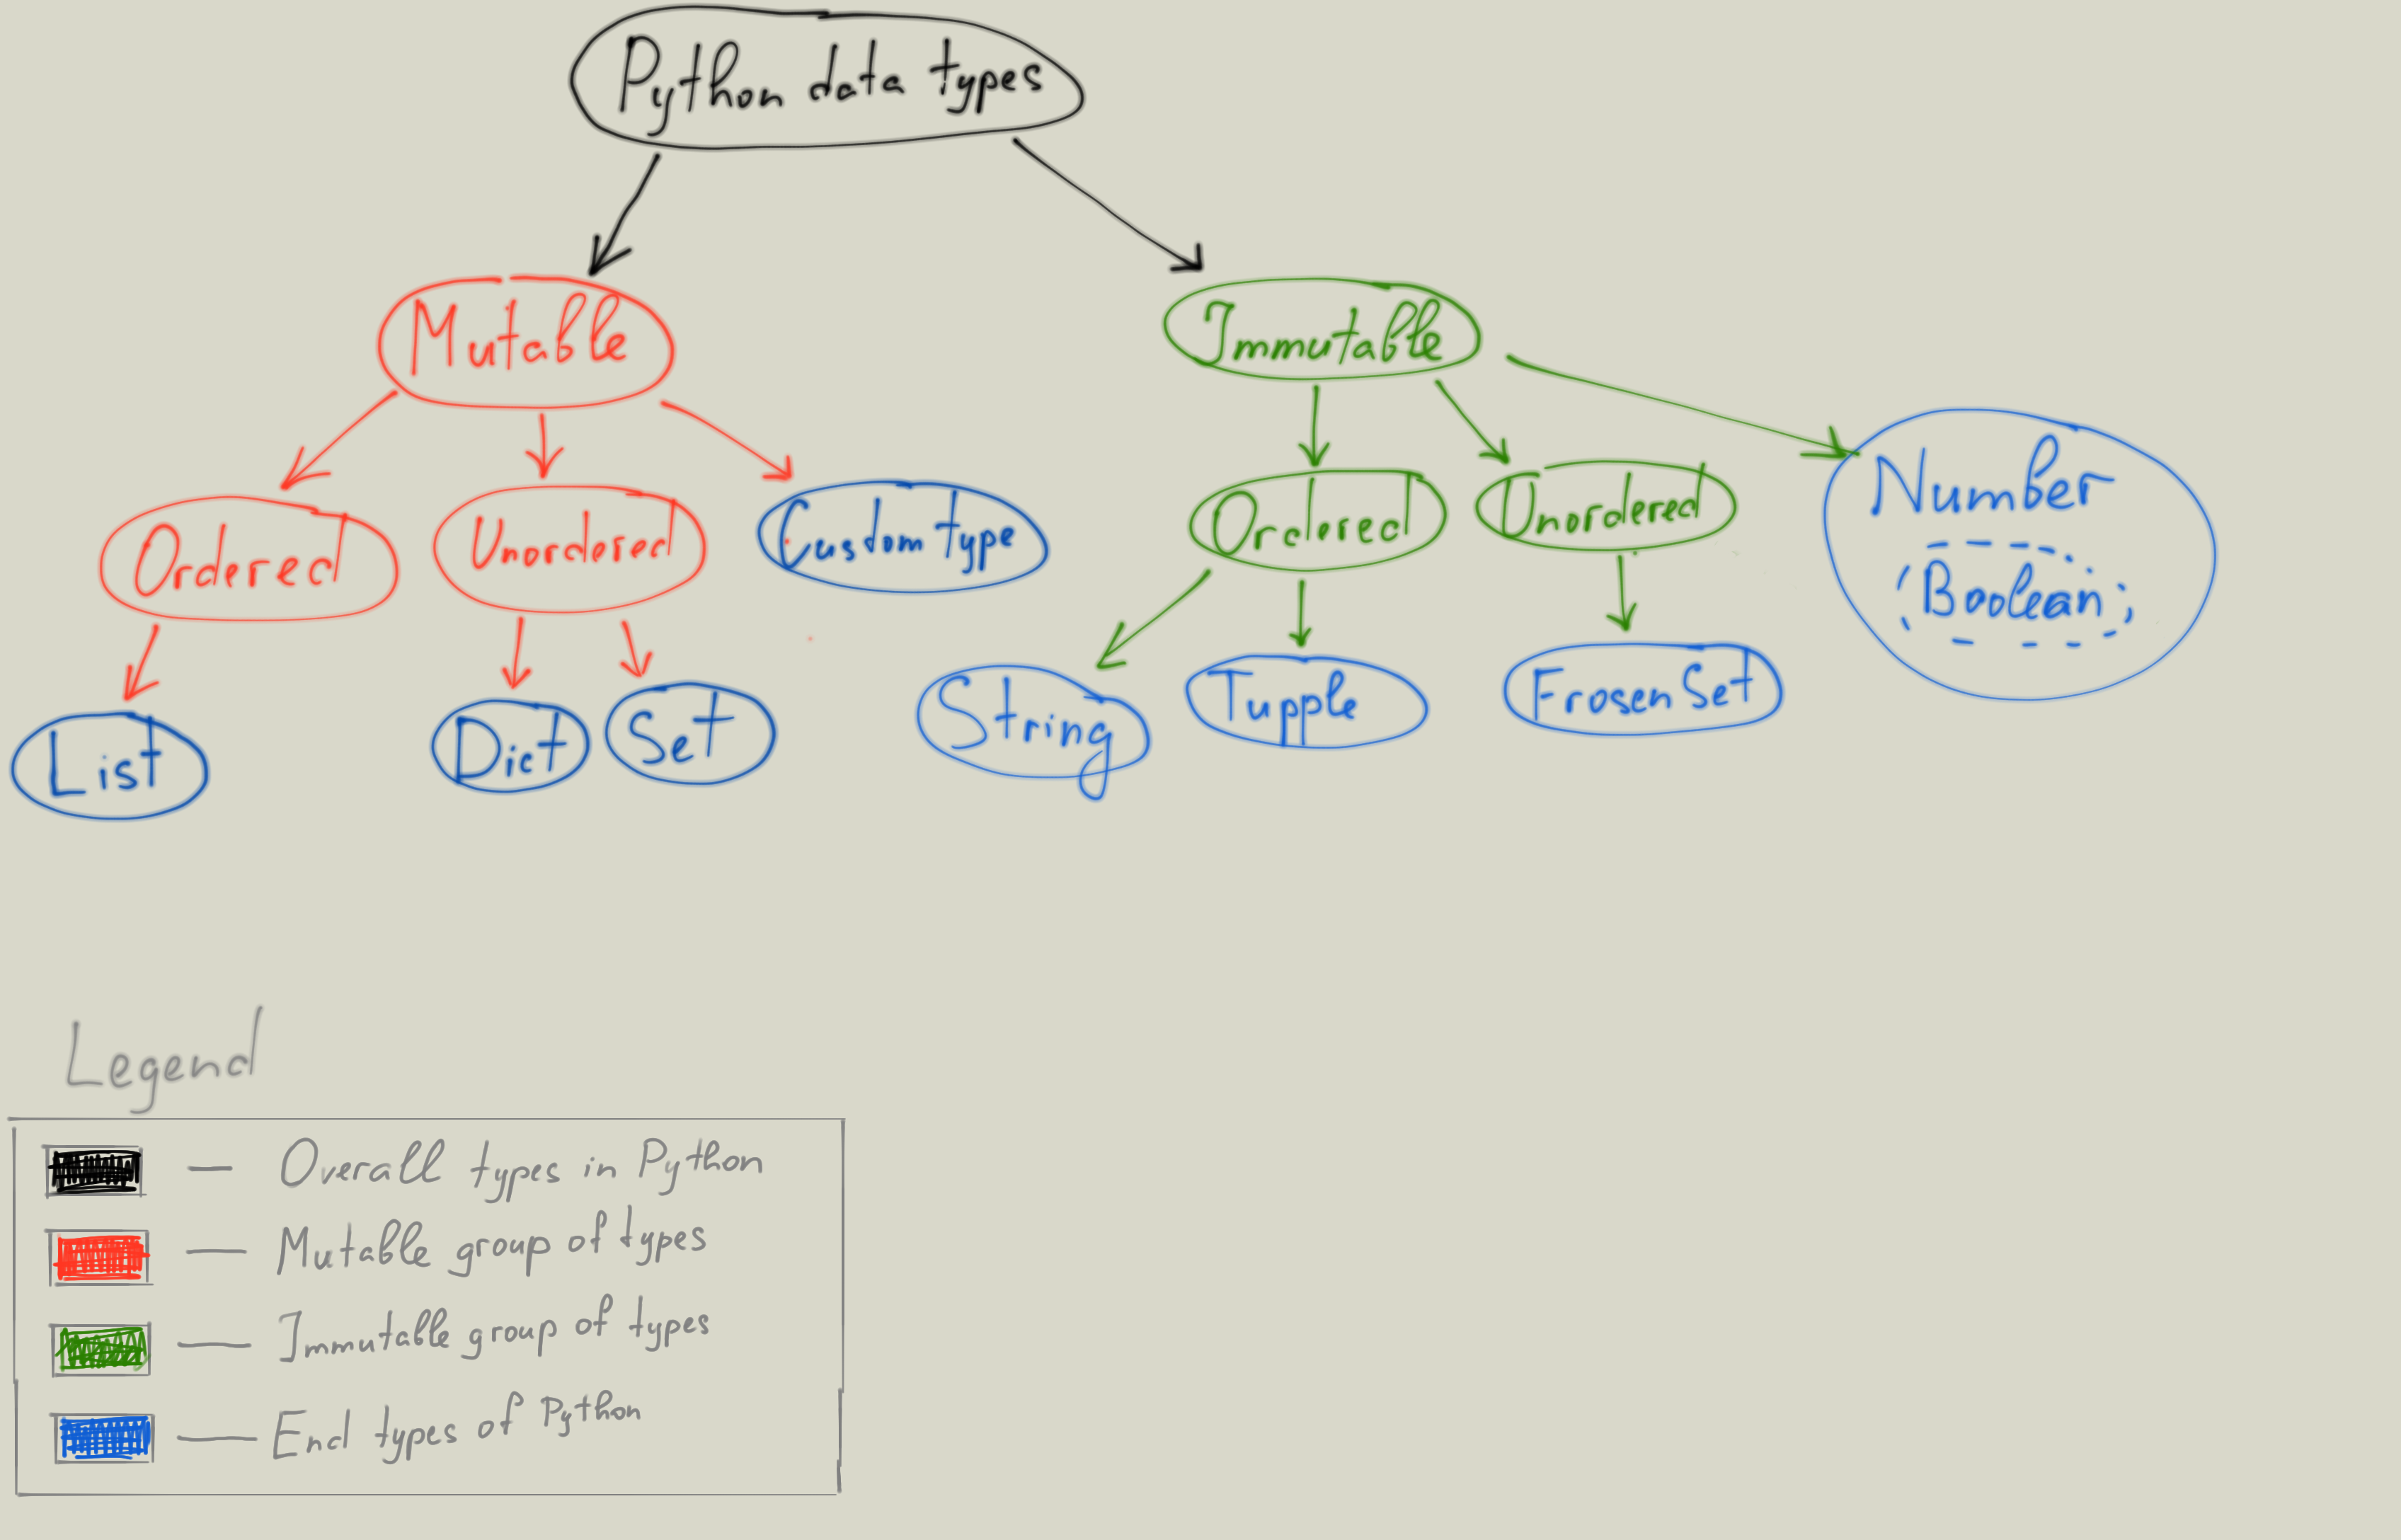 Python data types
Mutable
Immutable
Ordered
Unordered
Cusdom type
Ordered
Unordered
Number
Boolean
List
Dict
Set
String
Tupple
Frosen Set
Legend
— Overall types in Python
— Mutable group of types
— Immutable group of types
— End types of Python